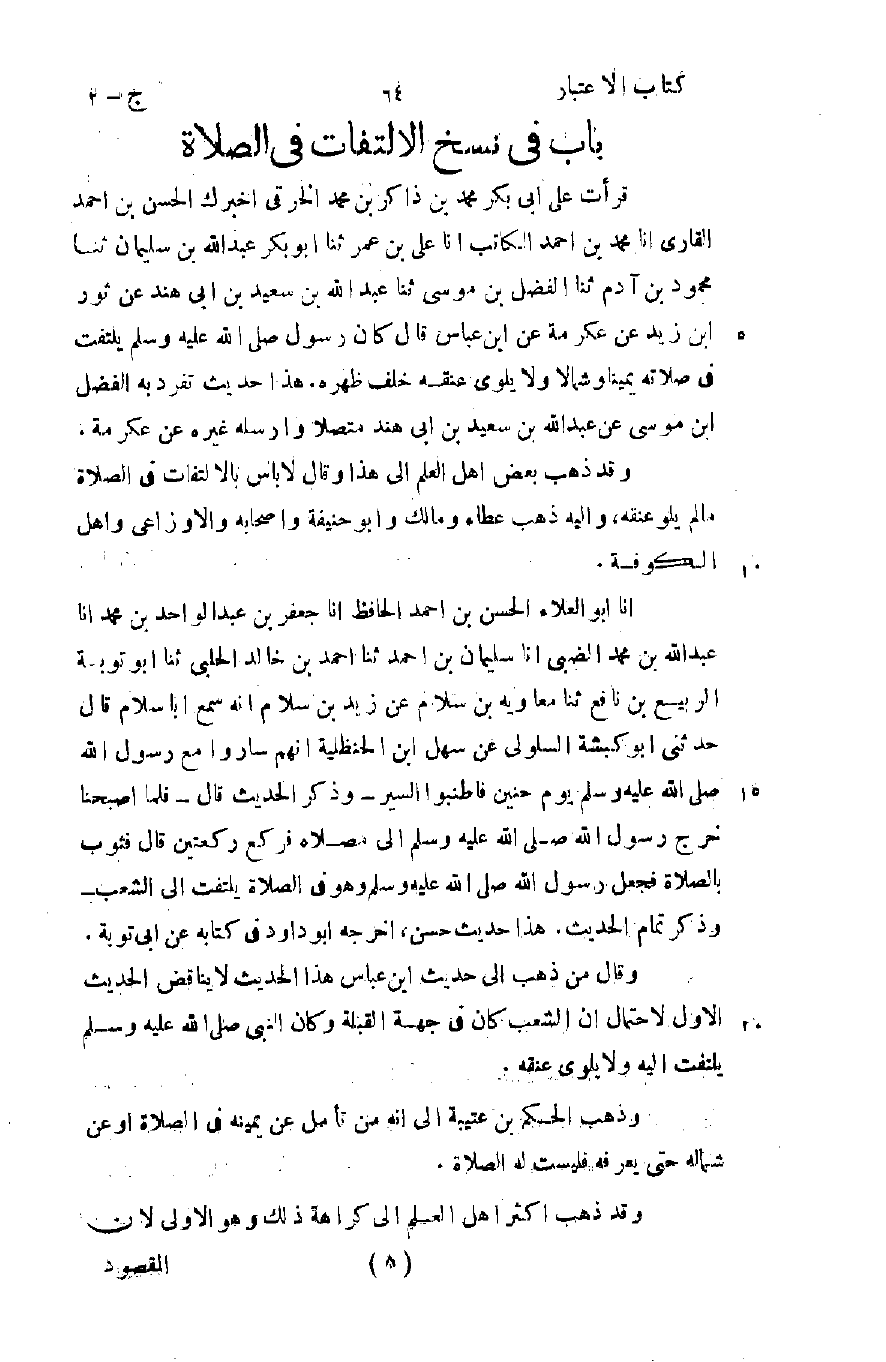 كتاب الاعتبار ٦٤ ج - ٢
باب فى نسخ الالتفات فى الصلاة
قرأت على ابى بكر محمد بن ذاكر بن محمد الخرقى اخبرك الحسن بن احمد
القارى انا محمد بن احمد الكاتب انا على بن عمر ثنا ابوبكر عبدالله بن سليمان ثنا
محمود بن آدم ثنا الفضل بن موسى ثنا عبد الله بن سعيد بن ابى هند عن ثور
ابن زيد عن عكرمة عن ابن عباس قال كان رسول صلى الله عليه وسلم يلتفت ٥
فى صلاته يمينا وشمالا ولا يلوى عنقه خلف ظهره. هذا حديث تفرد به الفضل
ابن موسى عن عبدالله بن سعيد بن ابى هند متصلا وارسله غيره عن عكرمة .
وقد ذهب بعض اهل العلم الى هذا وقال لاباس بالالتفات فى الصلاة
مالم يلو عنقه، واليه ذهب عطاء ومالك وابوحنيفة واصحابه والاوزاعى واهل
الكوفة . ١٠
انا ابو العلاء الحسن بن احمد الحافظ انا جعفر بن عبدالواحد بن محمد انا
عبدالله بن محمد الضبى انا سليمان بن احمد ثنا احمد بن خالد الحلبى ثنا ابو توبة
الربيع بن نافع ثنا معاويه بن سلام عن زيد بن سلام انه سمع ابا سلام قال
حدثنى ابو كبشة السلولى عن سهل ابن الحنظلية انهم ساروا مع رسول الله
صلى الله عليه وسلم يوم حنين فاطنبوا السير - وذكر الحديث قال - فلما اصبحنا ١٥
خرج رسول الله صلى الله عليه وسلم الى مصلاه فركع ركعتين قال فثوب
بالصلاة فجعل رسول الله صلى الله عليه وسلم وهو فى الصلاة يلتفت الى الشعب-
وذكر تمام الحديث. هذا حديث حسن، اخرجه ابو داود فى كتابه عن ابى توبة .
وقال من ذهب الى حديث ابن عباس هذا الحديث لاينافض الحديث
الاول لاحتمال ان الشعب كان فى جهة القبلة وكان النبى صلى الله عليه وسلم ٢٠
يلتفت اليه ولا يلوى عنقه .
وذهب الحكم بن عتيبة الى انه من تأمل عن يمينه فى الصلاة اوعن
شماله حتى يعرفه فليست له الصلاة .
وقد ذهب اكثر اهل العلم الى كراهة ذلك وهو الاولى لان
(٨) المقصود